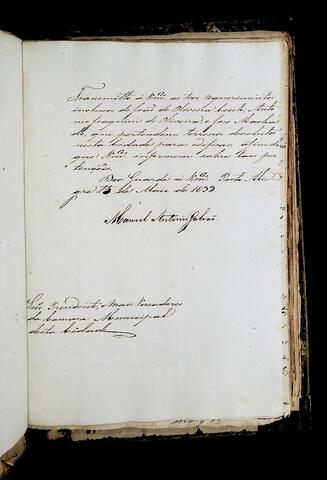 Transmitto á Vmces. os tres requerimentos
inclusos de José de Oliveira Couto, Anto-
nio Joaquim de Oliveira, e José Macha-
do, que pertendem terreno devoluto
nesta Cidade para edificar, afim de
que Vmces. informem sobre taes per-
tenções.
Deos Guarde á Vmces. Porto Ale-
gre 15 de Maio de 1832
Manoel Antonio Galvão
Snr. Presidente, e mais Vereadores
da Camara Municipal
desta Cidade